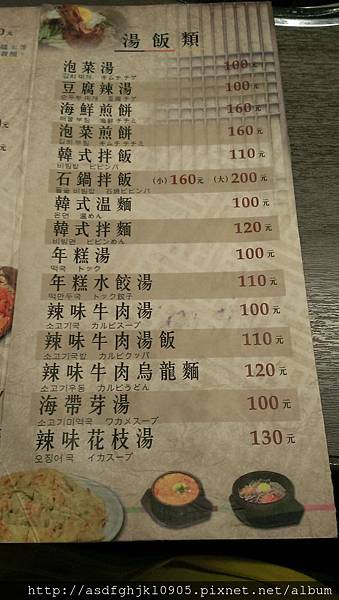 湯飯類
泡菜湯 100元
김치찌개 キムチチゲ
豆腐辣湯 100元
순두부찌개 豆腐チゲ
海鮮煎餅 160元
해물부침 海鮮チヂミ
泡菜煎餅 160元
김치부침 キムチチヂミ
韓式拌飯 110元
비빔밥 ビビンバ
石鍋拌飯 (小)160元 (大)200元
돌솥비빔밥 石鍋ビビンバ
韓式温麵 100元
온면 温めん
韓式拌麵 120元
비빔면 ビビンめん
年糕湯 100元
떡국 トック
年糕水餃湯 110元
떡만두국 トック餃子
辣味牛肉湯 100元
소고기국 カルビスープ
辣味牛肉湯飯 110元
소고기국밥 カルビクッパ
辣味牛肉烏龍麵 120元
소고기우동 カルビうどん
海帶芽湯 100元
소고기미역국 ワカメスープ
辣味花枝湯 130元
오징어국 イカスープ
http://asdfghjkl0905.pixnet.net/album